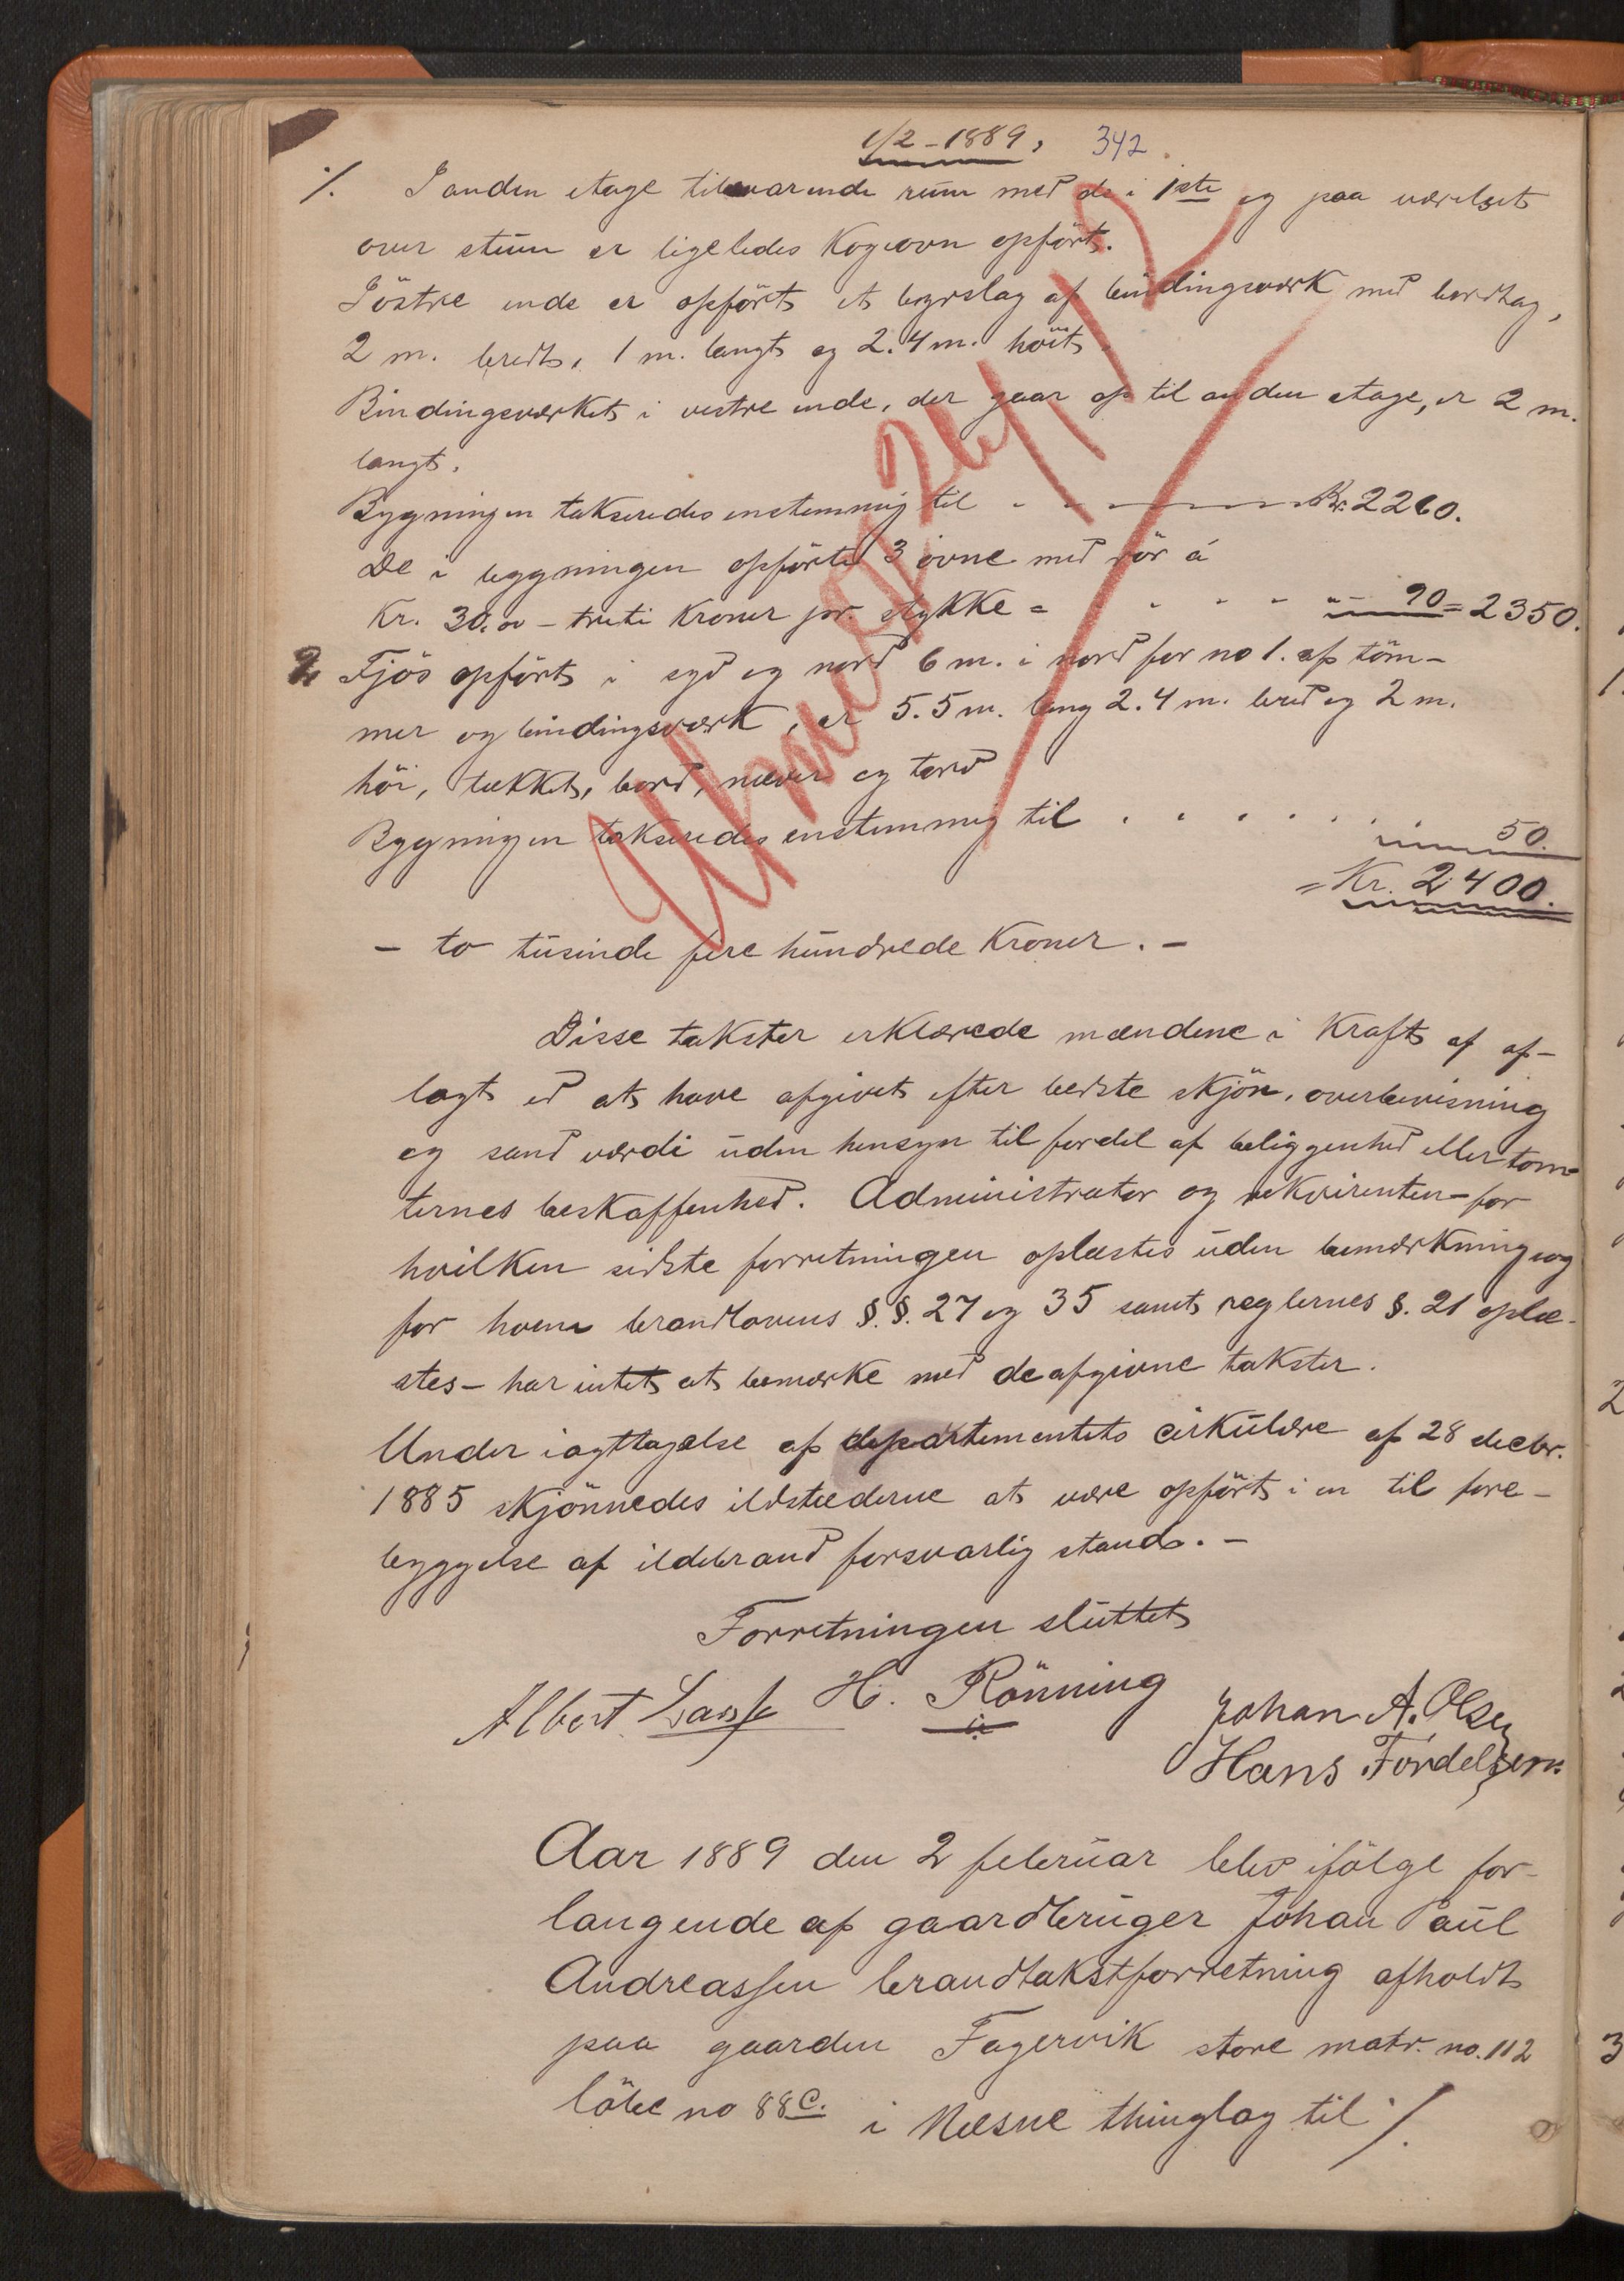 1/2-1889, 342.
./. I anden etage tilsvarende rum med de i 1ste og paa værelset
over stuen er ligeledes Kogeovn opført.
I östre ende er opført et bizslag af bindingsværk med bordtag,
2 m. bredt, 1 m. langt og 2.4 m. höit.
Bindingsværket i vestre ende, der gaar op til anden etage, er 2 m.
langt.
Bygningen takseredes enstemmig til - - - Kr. 2260.
De i bygningen opförte 3 ovne med rör á
Kr. 30,00 - treti Kroner pr. stykke = - - - - " - 90 = 2350.
2. Fjös opfört i syd og nord 6 m. i nord for no 1. af töm-
mer og bindingsværk, er 5.5 m. lang 2.4 m. bred og 2 m.
höi, tækket, bord, næver og torv
Bygningen takseredes enstemmig til . . . . . . 50.
= Kr. 2400.
- to tusinde fire hundrede Kroner. -
Disse takster erklærede mændene i Kraft af af-
lagt ed at have afgivet efter bedste skjön, overbevisning
og sand værdi uden hensyn til fordel af beliggenhed eller tom-
ternes beskaffenhed. Administrator og rekvirenten - for
hvilken sidste forretningen oplæstes uden bemærkning og
for hvem brandlovens §.§. 27 og 35 samt reglernes §. 21 oplæ-
stes - har intet at bemærke med de afgivne takster.
Under iagttagelse af departementets cirkulære af 28 decbr.
1885 skjönnedes ildstederne at være opfört i en til fore-
byggelse af ildebrand forsvarlig stand. -
Forretningen sluttet
Albert H. Rönning Johan A. Olsen
Hans Fordelsen.
Aar 1889 den 2 februar blev ifölge for-
langende af gaardbruger Johan Paul
Andreassen brandtakstforretning afholdt
paa gaarden Fagervik store matr. no. 112
löbe no 88c. i Næsne thinglag til ./.
26/12